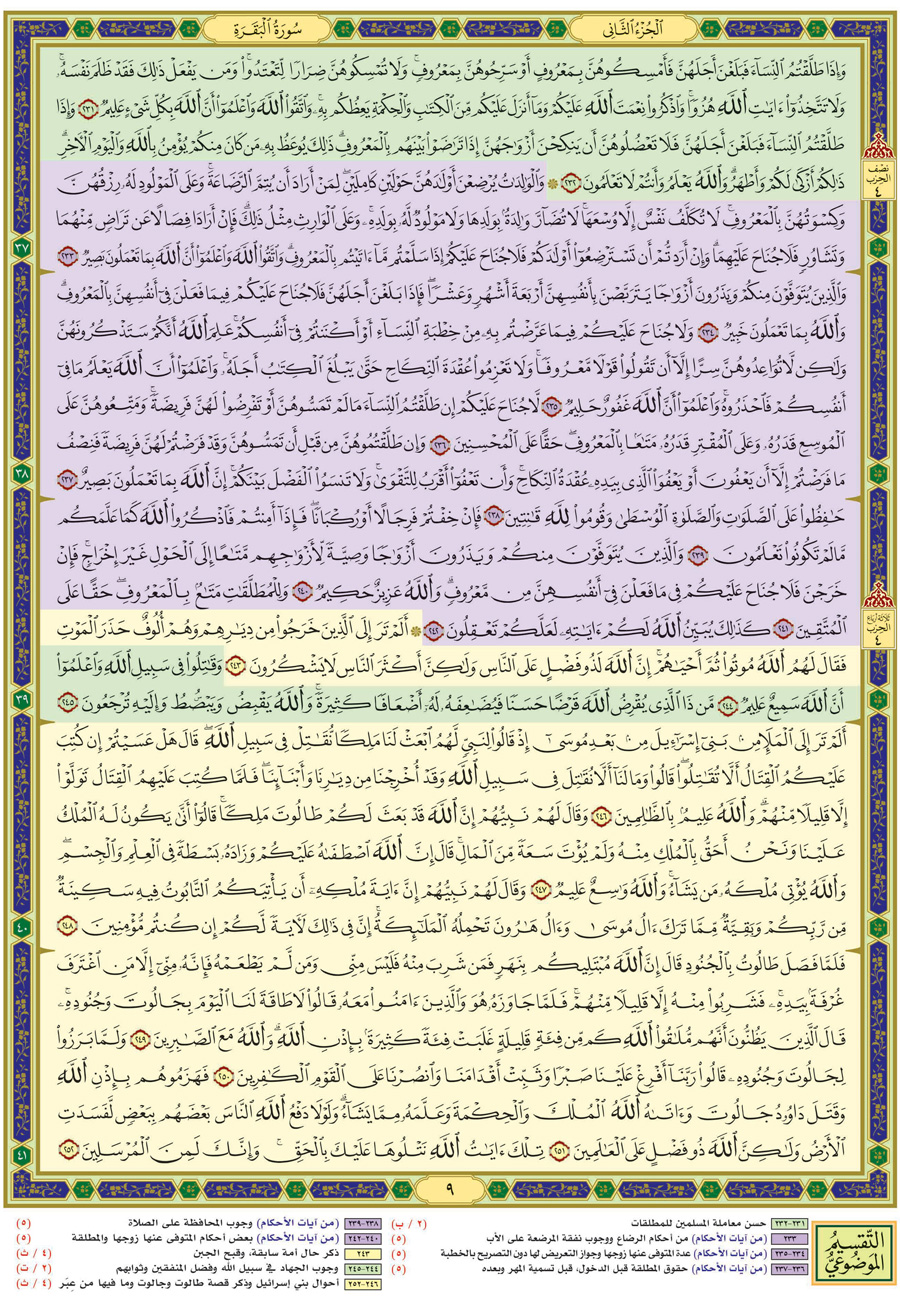 الجُزْءُ الثَّانِي
سُورَةُ الْبَقَرَةِ
وَإِذَا طَلَّقْتُمُ النِّسَاءَ فَبَلَغْنَ أَجَلَهُنَّ فَأَمْسِكُوهُنَّ بِمَعْرُوفٍ أَوْ سَرِّحُوهُنَّ بِمَعْرُوفٍ ۚ وَلَا تُمْسِكُوهُنَّ ضِرَارًا لِّتَعْتَدُوا ۚ وَمَن يَفْعَلْ ذَٰلِكَ فَقَدْ ظَلَمَ نَفْسَهُ ۚ
وَلَا تَتَّخِذُوا آيَاتِ اللَّهِ هُزُوًا ۚ وَاذْكُرُوا نِعْمَتَ اللَّهِ عَلَيْكُمْ وَمَا أَنزَلَ عَلَيْكُم مِّنَ الْكِتَابِ وَالْحِكْمَةِ يَعِظُكُم بِهِ ۚ وَاتَّقُوا اللَّهَ وَاعْلَمُوا أَنَّ اللَّهَ بِكُلِّ شَيْءٍ عَلِيمٌ ٢٣١ وَإِذَا
طَلَّقْتُمُ النِّسَاءَ فَبَلَغْنَ أَجَلَهُنَّ فَلَا تَعْضُلُوهُنَّ أَن يَنكِحْنَ أَزْوَاجَهُنَّ إِذَا تَرَاضَوْا بَيْنَهُم بِالْمَعْرُوفِ ۗ ذَٰلِكَ يُوعَظُ بِهِ مَن كَانَ مِنكُمْ يُؤْمِنُ بِاللَّهِ وَالْيَوْمِ الْآخِرِ ۗ
ذَٰلِكُمْ أَزْكَىٰ لَكُمْ وَأَطْهَرُ ۗ وَاللَّهُ يَعْلَمُ وَأَنتُمْ لَا تَعْلَمُونَ ٢٣٢ ۞ وَالْوَالِدَاتُ يُرْضِعْنَ أَوْلَادَهُنَّ حَوْلَيْنِ كَامِلَيْنِ ۖ لِمَنْ أَرَادَ أَن يُتِمَّ الرَّضَاعَةَ ۚ وَعَلَى الْمَوْلُودِ لَهُ رِزْقُهُنَّ
وَكِسْوَتُهُنَّ بِالْمَعْرُوفِ ۚ لَا تُكَلَّفُ نَفْسٌ إِلَّا وُسْعَهَا ۚ لَا تُضَارَّ وَالِدَةٌ بِوَلَدِهَا وَلَا مَوْلُودٌ لَّهُ بِوَلَدِهِ ۚ وَعَلَى الْوَارِثِ مِثْلُ ذَٰلِكَ ۗ فَإِنْ أَرَادَا فِصَالًا عَن تَرَاضٍ مِّنْهُمَا
وَتَشَاوُرٍ فَلَا جُنَاحَ عَلَيْهِمَا ۗ وَإِنْ أَرَدتُّمْ أَن تَسْتَرْضِعُوا أَوْلَادَكُمْ فَلَا جُنَاحَ عَلَيْكُمْ إِذَا سَلَّمْتُم مَّا آتَيْتُم بِالْمَعْرُوفِ ۗ وَاتَّقُوا اللَّهَ وَاعْلَمُوا أَنَّ اللَّهَ بِمَا تَعْمَلُونَ بَصِيرٌ ٢٣٣
وَالَّذِينَ يُتَوَفَّوْنَ مِنكُمْ وَيَذَرُونَ أَزْوَاجًا يَتَرَبَّصْنَ بِأَنفُسِهِنَّ أَرْبَعَةَ أَشْهُرٍ وَعَشْرًا ۖ فَإِذَا بَلَغْنَ أَجَلَهُنَّ فَلَا جُنَاحَ عَلَيْكُمْ فِيمَا فَعَلْنَ فِي أَنفُسِهِنَّ بِالْمَعْرُوفِ ۗ
وَاللَّهُ بِمَا تَعْمَلُونَ خَبِيرٌ ٢٣٤ وَلَا جُنَاحَ عَلَيْكُمْ فِيمَا عَرَّضْتُم بِهِ مِنْ خِطْبَةِ النِّسَاءِ أَوْ أَكْنَنتُمْ فِي أَنفُسِكُمْ ۚ عَلِمَ اللَّهُ أَنَّكُمْ سَتَذْكُرُونَهُنَّ
وَلَٰكِن لَّا تُوَاعِدُوهُنَّ سِرًّا إِلَّا أَن تَقُولُوا قَوْلًا مَّعْرُوفًا ۚ وَلَا تَعْزِمُوا عُقْدَةَ النِّكَاحِ حَتَّىٰ يَبْلُغَ الْكِتَابُ أَجَلَهُ ۚ وَاعْلَمُوا أَنَّ اللَّهَ يَعْلَمُ مَا فِي
أَنفُسِكُمْ فَاحْذَرُوهُ ۚ وَاعْلَمُوا أَنَّ اللَّهَ غَفُورٌ حَلِيمٌ ٢٣٥ لَّا جُنَاحَ عَلَيْكُمْ إِن طَلَّقْتُمُ النِّسَاءَ مَا لَمْ تَمَسُّوهُنَّ أَوْ تَفْرِضُوا لَهُنَّ فَرِيضَةً ۚ وَمَتِّعُوهُنَّ عَلَى
الْمُوسِعِ قَدَرُهُ وَعَلَى الْمُقْتِرِ قَدَرُهُ مَتَاعًا بِالْمَعْرُوفِ ۖ حَقًّا عَلَى الْمُحْسِنِينَ ٢٣٦ وَإِن طَلَّقْتُمُوهُنَّ مِن قَبْلِ أَن تَمَسُّوهُنَّ وَقَدْ فَرَضْتُمْ لَهُنَّ فَرِيضَةً فَنِصْفُ
مَا فَرَضْتُمْ إِلَّا أَن يَعْفُونَ أَوْ يَعْفُوَ الَّذِي بِيَدِهِ عُقْدَةُ النِّكَاحِ ۚ وَأَن تَعْفُوا أَقْرَبُ لِلتَّقْوَىٰ ۚ وَلَا تَنسَوُا الْفَضْلَ بَيْنَكُمْ ۚ إِنَّ اللَّهَ بِمَا تَعْمَلُونَ بَصِيرٌ ٢٣٧
حَافِظُوا عَلَى الصَّلَوَاتِ وَالصَّلَاةِ الْوُسْطَىٰ وَقُومُوا لِلَّهِ قَانِتِينَ ٢٣٨ فَإِنْ خِفْتُمْ فَرِجَالًا أَوْ رُكْبَانًا ۖ فَإِذَا أَمِنتُمْ فَاذْكُرُوا اللَّهَ كَمَا عَلَّمَكُم
مَّا لَمْ تَكُونُوا تَعْلَمُونَ ٢٣٩ وَالَّذِينَ يُتَوَفَّوْنَ مِنكُمْ وَيَذَرُونَ أَزْوَاجًا وَصِيَّةً لِّأَزْوَاجِهِم مَّتَاعًا إِلَى الْحَوْلِ غَيْرَ إِخْرَاجٍ ۚ فَإِنْ
خَرَجْنَ فَلَا جُنَاحَ عَلَيْكُمْ فِي مَا فَعَلْنَ فِي أَنفُسِهِنَّ مِن مَّعْرُوفٍ ۗ وَاللَّهُ عَزِيزٌ حَكِيمٌ ٢٤٠ وَلِلْمُطَلَّقَاتِ مَتَاعٌ بِالْمَعْرُوفِ ۖ حَقًّا عَلَى
الْمُتَّقِينَ ٢٤١ كَذَٰلِكَ يُبَيِّنُ اللَّهُ لَكُمْ آيَاتِهِ لَعَلَّكُمْ تَعْقِلُونَ ٢٤٢ ۞ أَلَمْ تَرَ إِلَى الَّذِينَ خَرَجُوا مِن دِيَارِهِمْ وَهُمْ أُلُوفٌ حَذَرَ الْمَوْتِ
فَقَالَ لَهُمُ اللَّهُ مُوتُوا ثُمَّ أَحْيَاهُمْ ۚ إِنَّ اللَّهَ لَذُو فَضْلٍ عَلَى النَّاسِ وَلَٰكِنَّ أَكْثَرَ النَّاسِ لَا يَشْكُرُونَ ٢٤٣ وَقَاتِلُوا فِي سَبِيلِ اللَّهِ وَاعْلَمُوا
أَنَّ اللَّهَ سَمِيعٌ عَلِيمٌ ٢٤٤ مَّن ذَا الَّذِي يُقْرِضُ اللَّهَ قَرْضًا حَسَنًا فَيُضَاعِفَهُ لَهُ أَضْعَافًا كَثِيرَةً ۚ وَاللَّهُ يَقْبِضُ وَيَبْسُطُ وَإِلَيْهِ تُرْجَعُونَ ٢٤٥
أَلَمْ تَرَ إِلَى الْمَلَإِ مِن بَنِي إِسْرَائِيلَ مِن بَعْدِ مُوسَىٰ إِذْ قَالُوا لِنَبِيٍّ لَّهُمُ ابْعَثْ لَنَا مَلِكًا نُّقَاتِلْ فِي سَبِيلِ اللَّهِ ۖ قَالَ هَلْ عَسَيْتُمْ إِن كُتِبَ
عَلَيْكُمُ الْقِتَالُ أَلَّا تُقَاتِلُوا ۖ قَالُوا وَمَا لَنَا أَلَّا نُقَاتِلَ فِي سَبِيلِ اللَّهِ وَقَدْ أُخْرِجْنَا مِن دِيَارِنَا وَأَبْنَائِنَا ۖ فَلَمَّا كُتِبَ عَلَيْهِمُ الْقِتَالُ تَوَلَّوْا
إِلَّا قَلِيلًا مِّنْهُمْ ۗ وَاللَّهُ عَلِيمٌ بِالظَّالِمِينَ ٢٤٦ وَقَالَ لَهُمْ نَبِيُّهُمْ إِنَّ اللَّهَ قَدْ بَعَثَ لَكُمْ طَالُوتَ مَلِكًا ۚ قَالُوا أَنَّىٰ يَكُونُ لَهُ الْمُلْكُ
عَلَيْنَا وَنَحْنُ أَحَقُّ بِالْمُلْكِ مِنْهُ وَلَمْ يُؤْتَ سَعَةً مِّنَ الْمَالِ ۚ قَالَ إِنَّ اللَّهَ اصْطَفَاهُ عَلَيْكُمْ وَزَادَهُ بَسْطَةً فِي الْعِلْمِ وَالْجِسْمِ ۖ
وَاللَّهُ يُؤْتِي مُلْكَهُ مَن يَشَاءُ ۚ وَاللَّهُ وَاسِعٌ عَلِيمٌ ٢٤٧ وَقَالَ لَهُمْ نَبِيُّهُمْ إِنَّ آيَةَ مُلْكِهِ أَن يَأْتِيَكُمُ التَّابُوتُ فِيهِ سَكِينَةٌ
مِّن رَّبِّكُمْ وَبَقِيَّةٌ مِّمَّا تَرَكَ آلُ مُوسَىٰ وَآلُ هَارُونَ تَحْمِلُهُ الْمَلَائِكَةُ ۚ إِنَّ فِي ذَٰلِكَ لَآيَةً لَّكُمْ إِن كُنتُم مُّؤْمِنِينَ ٢٤٨
فَلَمَّا فَصَلَ طَالُوتُ بِالْجُنُودِ قَالَ إِنَّ اللَّهَ مُبْتَلِيكُم بِنَهَرٍ فَمَن شَرِبَ مِنْهُ فَلَيْسَ مِنِّي وَمَن لَّمْ يَطْعَمْهُ فَإِنَّهُ مِنِّي إِلَّا مَنِ اغْتَرَفَ
غُرْفَةً بِيَدِهِ ۚ فَشَرِبُوا مِنْهُ إِلَّا قَلِيلًا مِّنْهُمْ ۚ فَلَمَّا جَاوَزَهُ هُوَ وَالَّذِينَ آمَنُوا مَعَهُ قَالُوا لَا طَاقَةَ لَنَا الْيَوْمَ بِجَالُوتَ وَجُنُودِهِ ۚ
قَالَ الَّذِينَ يَظُنُّونَ أَنَّهُم مُّلَاقُو اللَّهِ كَم مِّن فِئَةٍ قَلِيلَةٍ غَلَبَتْ فِئَةً كَثِيرَةً بِإِذْنِ اللَّهِ ۗ وَاللَّهُ مَعَ الصَّابِرِينَ ٢٤٩ وَلَمَّا بَرَزُوا
لِجَالُوتَ وَجُنُودِهِ قَالُوا رَبَّنَا أَفْرِغْ عَلَيْنَا صَبْرًا وَثَبِّتْ أَقْدَامَنَا وَانصُرْنَا عَلَى الْقَوْمِ الْكَافِرِينَ ٢٥٠ فَهَزَمُوهُم بِإِذْنِ اللَّهِ
وَقَتَلَ دَاوُودُ جَالُوتَ وَآتَاهُ اللَّهُ الْمُلْكَ وَالْحِكْمَةَ وَعَلَّمَهُ مِمَّا يَشَاءُ ۗ وَلَوْلَا دَفْعُ اللَّهِ النَّاسَ بَعْضَهُم بِبَعْضٍ لَّفَسَدَتِ
الْأَرْضُ وَلَٰكِنَّ اللَّهَ ذُو فَضْلٍ عَلَى الْعَالَمِينَ ٢٥١ تِلْكَ آيَاتُ اللَّهِ نَتْلُوهَا عَلَيْكَ بِالْحَقِّ ۚ وَإِنَّكَ لَمِنَ الْمُرْسَلِينَ ٢٥٢
نصف الحزب ٤
ثلاثة أرباع الحزب ٤
٣٧
٣٨
٣٩
٤٠
٤١
٩
التَّقسِيمُ المَوضُوعِيُّ
٢٣١-٢٣٢ حسن معاملة المسلمين للمطلقات (٢ / ب)
٢٣٣ (من آيات الأحكام) من أحكام الرضاع ووجوب نفقة المرضعة على الأب (٥)
٢٣٤-٢٣٥ (من آيات الأحكام) عدة المتوفى عنها زوجها وجواز التعريض لها دون التصريح بالخطبة (٥)
٢٣٦-٢٣٧ (من آيات الأحكام) حقوق المطلقة قبل الدخول، قبل تسمية المهر وبعده (٥)
٢٣٨-٢٣٩ (من آيات الأحكام) وجوب المحافظة على الصلاة (٥)
٢٤٠-٢٤٢ (من آيات الأحكام) بعض أحكام المتوفى عنها زوجها والمطلقة (٥)
٢٤٣ ذكر حال أمة سابقة، وقبح الجبن (٤ / ث)
٢٤٤-٢٤٥ وجوب الجهاد في سبيل الله وفضل المنفقين وثوابهم (٢ / ت)
٢٤٦-٢٥٢ أحوال بني إسرائيل وذكر قصة طالوت وجالوت وما فيها من عِبَر (٤ / ث)